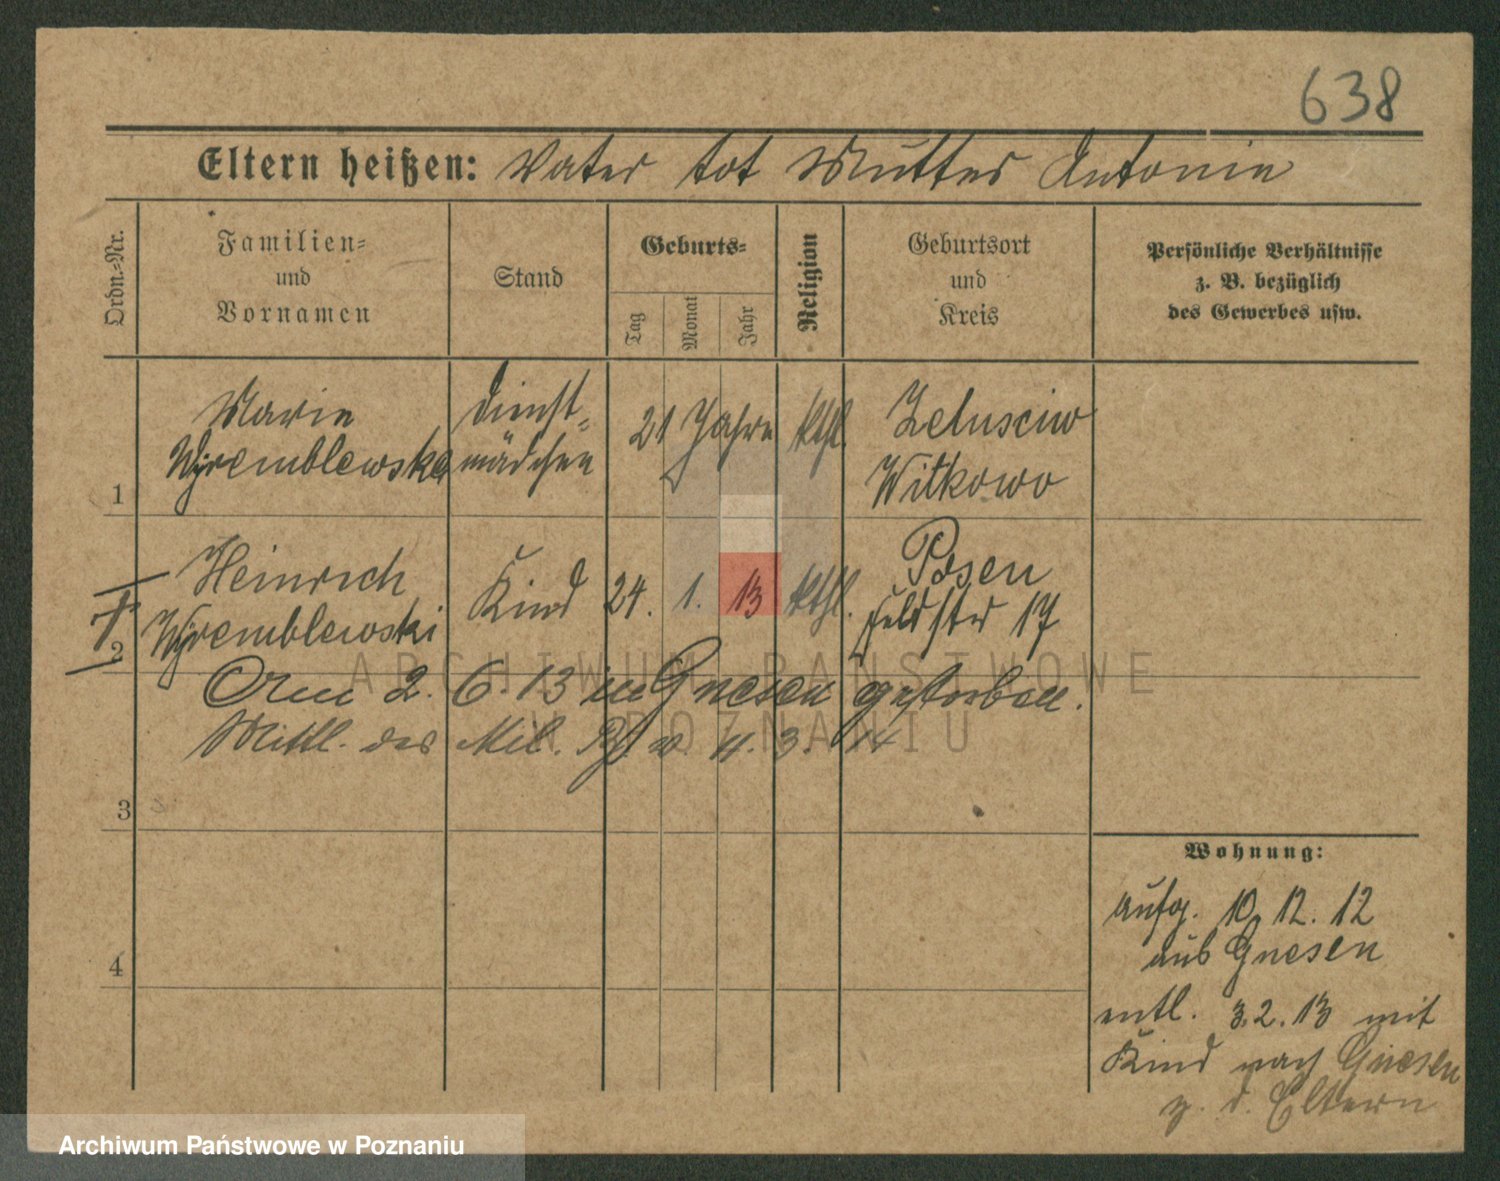 638
Eltern heißen: Vater tot Mutter Antonie
Ordn.-Nr.
Familien-
und
Vornamen
Stand
Geburts-
Tag
Monat
Jahr
Religion
Geburtsort
und
Kreis
Persönliche Verhältnisse
z. B. bezüglich
des Gewerbes usw.
Marie Dienst- 21 Jahre kthl. Zelusciw
1 Wyremblewska mädchen Witkowo
Heinrich Kind 24. 1. 13 kthl. Posen
2 Wyremblewski Feldstr 17
Am 2. 6. 13 in Gnesen gestorben.
Mittl. des Mil. v. 11. 3. 14
3
4
Wohnung:
aufg. 10. 12. 12
aus Gnesen
entl. 3.2.13 mit
Kind nach Gnesen
z. d. Eltern
ARCHIWUM PAŃSTWOWE
W POZNANIU
Archiwum Państwowe w Poznaniu